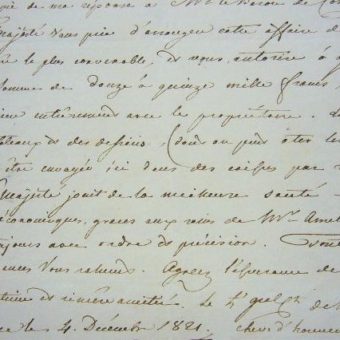 de ma réponse à Mr le Baron de
Majesté vous prie d'arranger cette affaire d
le plus convenable, et vous autorise à
sommes de douze à quinze mille francs
entièrement avec le propriétaire.
et des dessins, (dont on peut ôter les
être envoyés ici dans des caisses par
Majesté jouit de la meilleure santé
économiques, graces aux soins de Mr. Amel
toujours avec ordre et précision.
vous attend. Agréez l'assurance de
estime et sincère amitié. Le
ce 4. Décembre 1821. chev. d'honneur